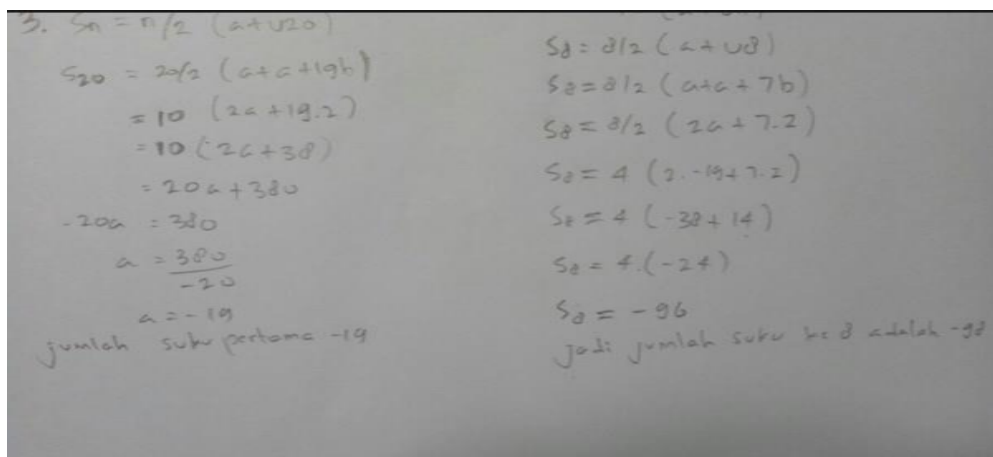 3. Sn = n/2 (a+U20)
S20 = 20/2 (a+a+19b)
= 10 (2a+19.2)
= 10 (2a+38)
= 20a+380
-20a = 380
a = 380
-20
a = -19
jumlah suku pertama -19
S8 = 8/2 (a+U8)
S8 = 8/2 (a+a+7b)
S8 = 8/2 (2a+7.2)
S8 = 4 (2.-19+7.2)
S8 = 4 (-38+14)
S8 = 4.(-24)
S8 = -96
jadi jumlah suku ke 8 adalah -98